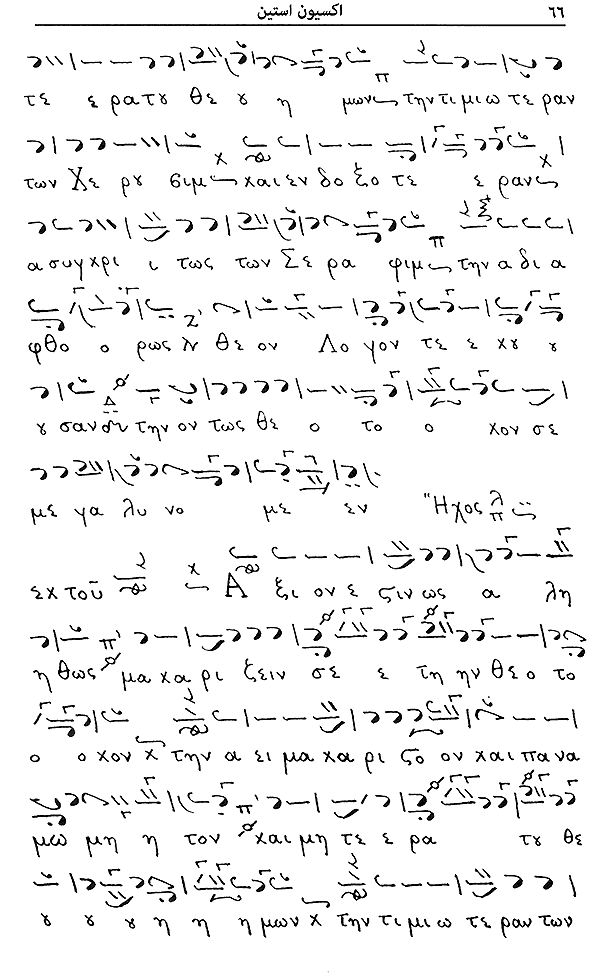 اكسيون استين ٦٦
τε ε ρα του θε ου η μων την τι μι ω τε ραν
των Χε ρου βιμ και εν δο ξο τε ε ραν
α συγκρι ι τως των Σε ρα φιμ την α δι α
φθο ο ρως θε ον Λο γον τε ε κου ου
ου σαν την ον τως θε ο το ο κον σε
με γα λυ νο με εν Ἦχος λ π
εκ τοῦ Α ξι ον ε στιν ως α λη
η θως μα κα ρι ζειν σε ε τη ην θε ο το
ο ο κον την α ει μα κα ρι στο ον και πα να
μω μη η τον και μη τε ε ρα του θε
ου ου ου η η η μων την τι μι ω τε ραν των